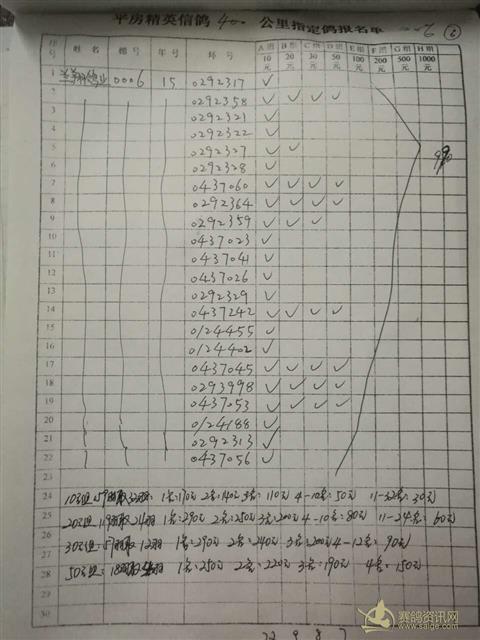 平房精英信鸽400公里指定鸽报名单
序号 姓名 棚号 年号 环号 A组10元 B组20元 C组30元 D组50元 E组100元 F组200元 G组500元 H组1000元
1 0006 15 0292317 ✓
2 0292358 ✓ ✓ ✓ ✓
3 0292321 ✓
4 0292322 ✓
5 0292327 ✓ ✓
6 0292328 ✓
7 0437060 ✓ ✓ ✓ ✓
8 0292364 ✓ ✓ ✓ ✓
9 0292359 ✓ ✓ ✓
10 0437023 ✓
11 0437041 ✓
12 0437026 ✓
13 0292329 ✓
14 0437242 ✓ ✓ ✓ ✓
15 0124455 ✓
16 0124402 ✓
17 0437045 ✓ ✓ ✓ ✓
18 0293998 ✓ ✓ ✓ ✓
19 0437053 ✓ ✓ ✓ ✓
20 0124188 ✓
21 0292313 ✓
22 0437056 ✓
23
24 10元组: 1名:170元 2名:140元 3名:110元 4-10名:50元 11-32名:30元
25 20元组: 1名:290元 2名:250元 3名:200元 4-10名:80元 11-24名:60元
26
27 30元组: 1名:290元 2名:240元 3名:200元 4-12名:90元
28 50元组: 1名:250元 2名:220元 3名:190元 4名:150元
29
30
赛鸽资讯网
www.saige.com